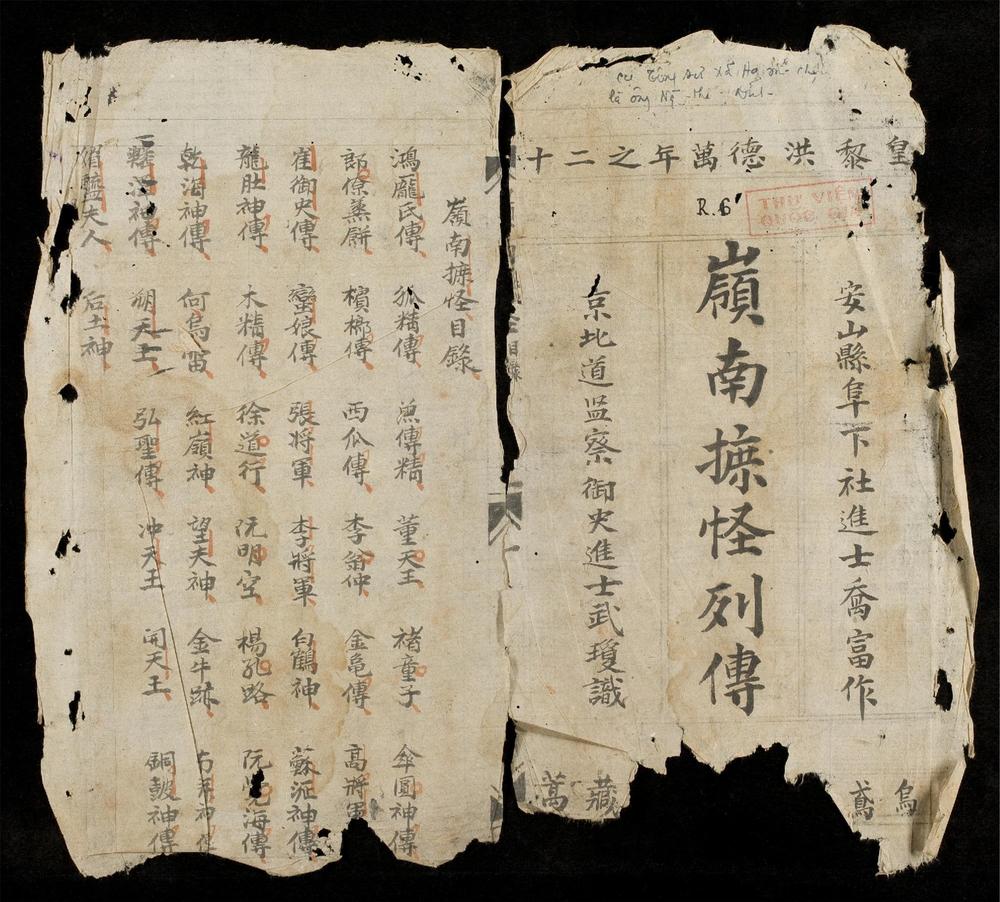 皇黎洪德萬年之二十
R.6
THƯ VIỆN
QUỐC GIA
安山縣阜下社進士喬富作
嶺南摭怪列傳
京北道监察御史進士武瓊識
烏
鳶
藏
萬
嶺南摭怪目錄
鴻龐氏傳 狐精傳 漁傳精 董天王 褚童子 傘圓神傳
郎僚蒸餅 檳榔傳 西瓜傳 李翁仲 金龜傳 高將軍
崔御史傳 蠻娘傳 張將軍 李將軍 白鶴神 蘇沥神傳
龍肚神傳 木精傳 徐道行 阮明空 楊孔路 阮覺海傳
乾海神傳 何烏雷 紅嶺神 望夫神 金牛跡
神傳 朔天王 弘聖傳 冲天王 開天王 銅鼓神傳
媚醯夫人 后土神